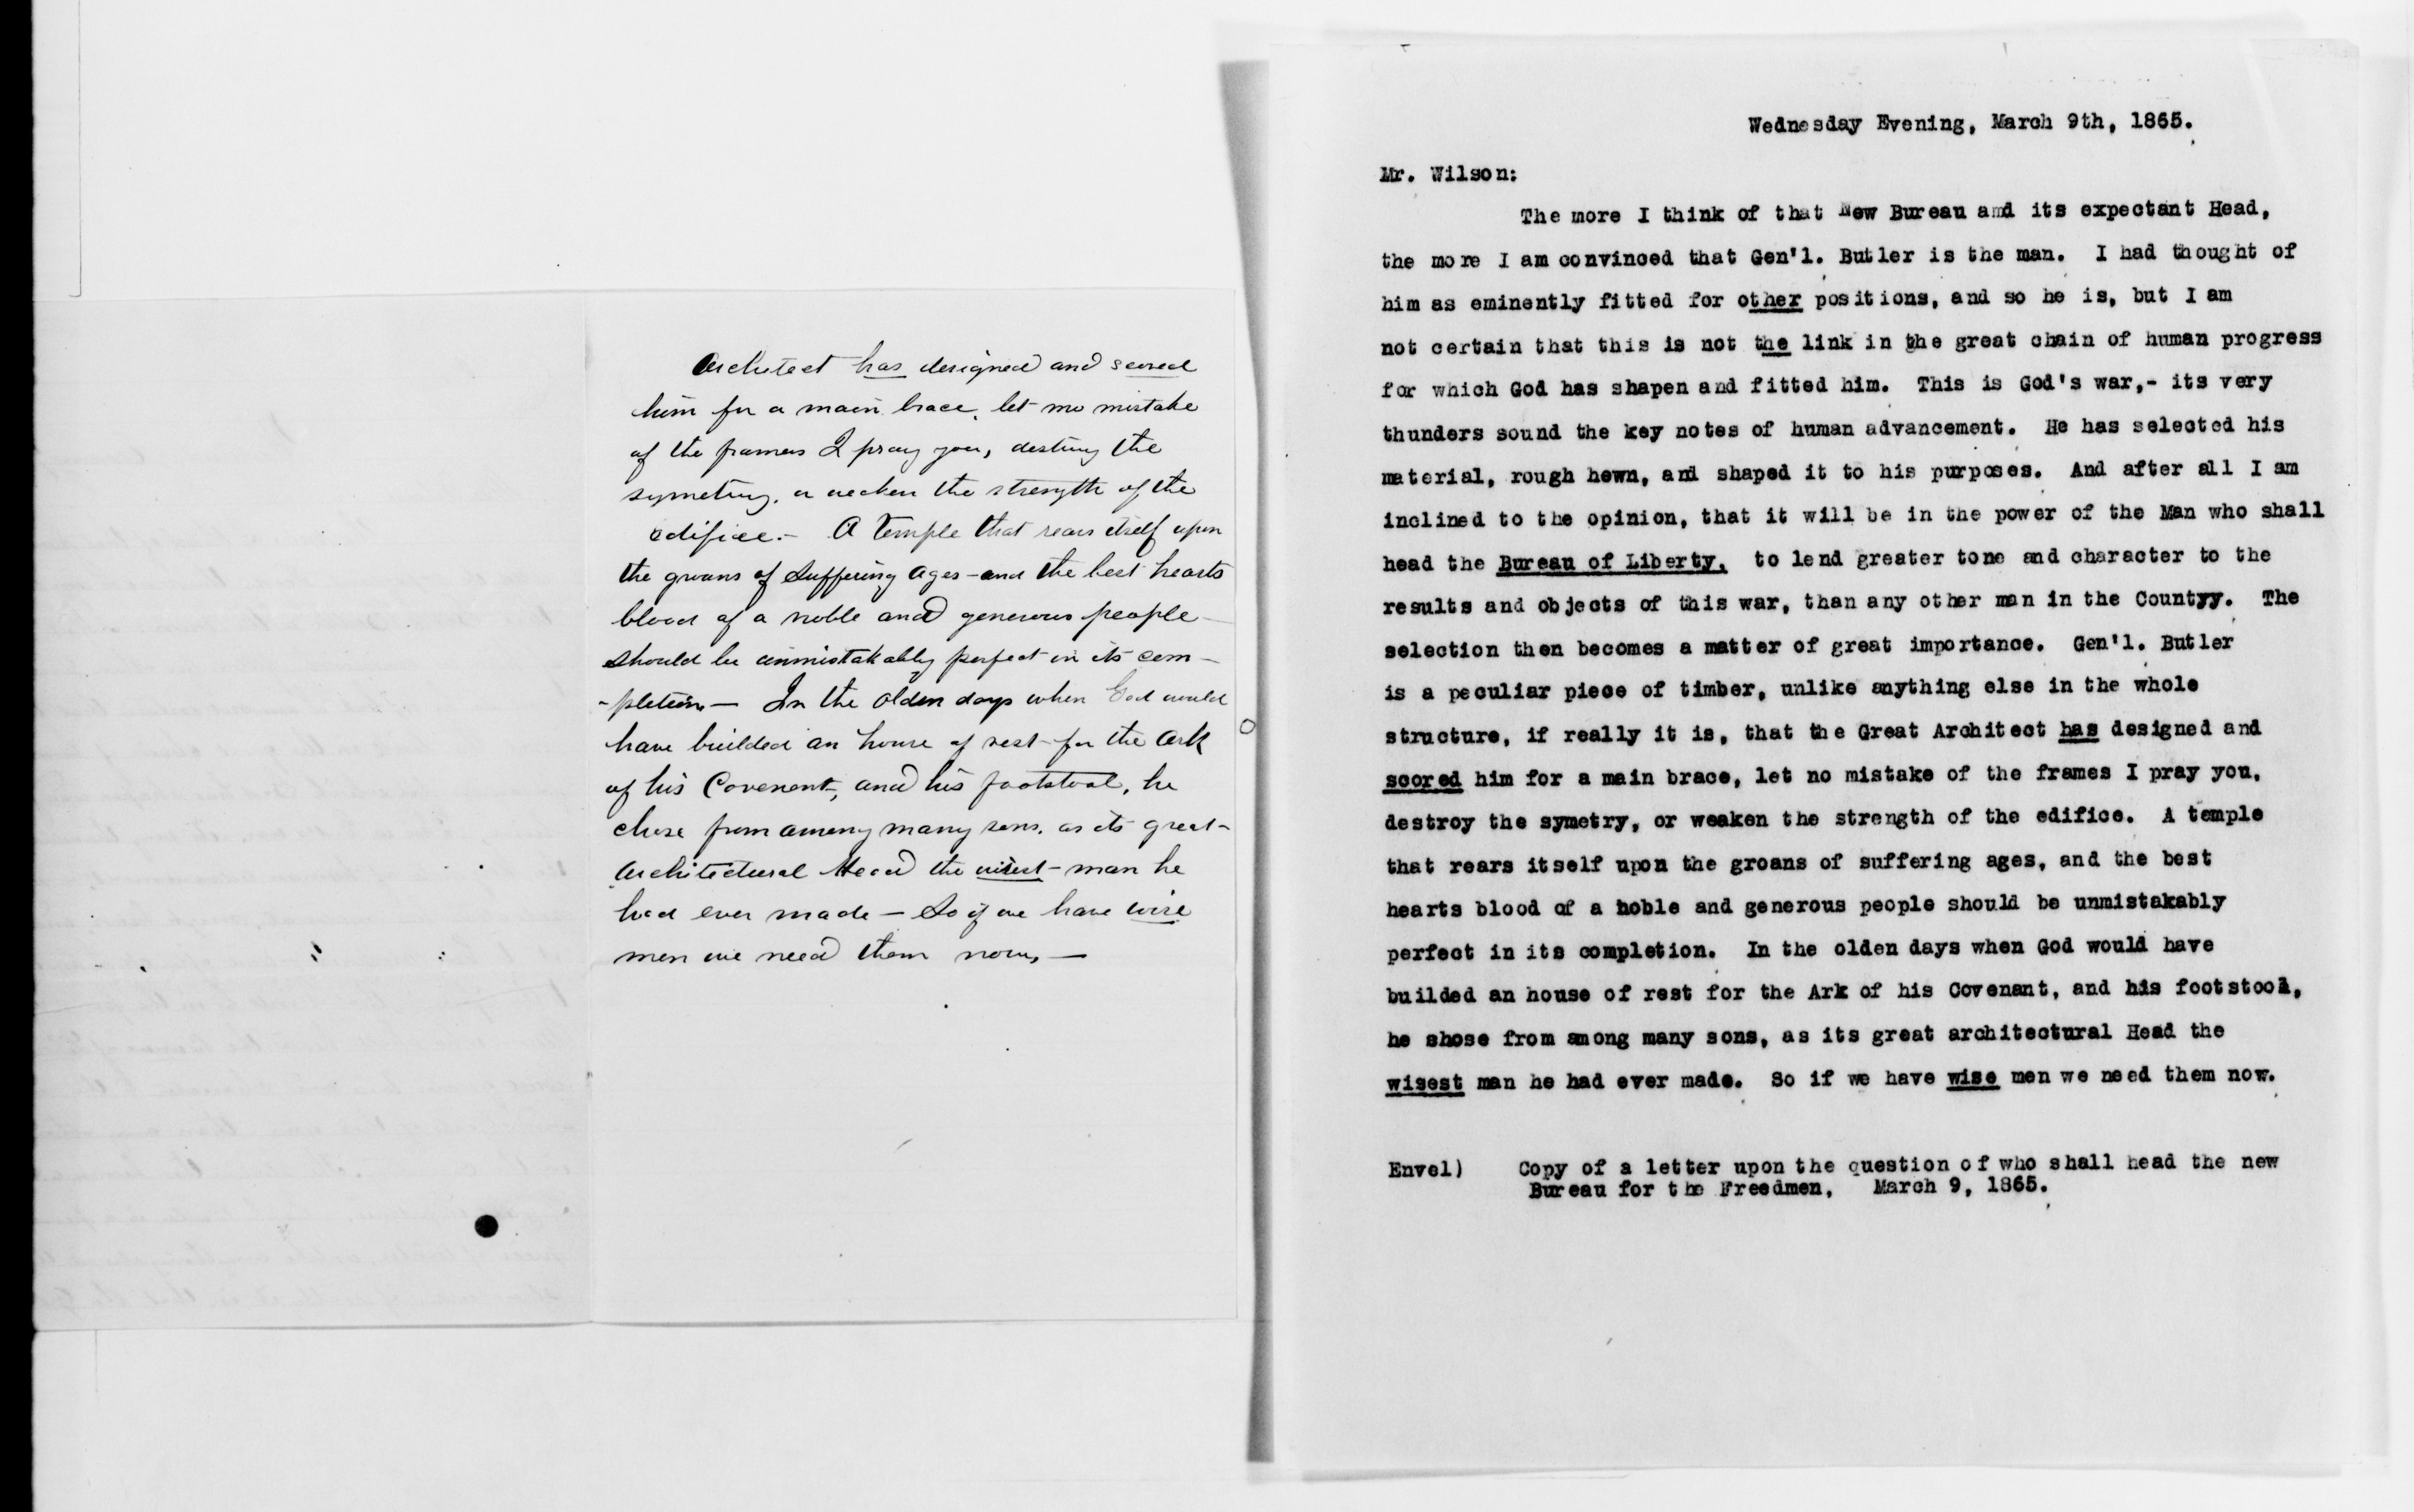 Architect has designed and scored
him for a main brace, let no mistake
of the frames I pray you, destroy the
symetry, or weaken the strength of the
edifice.- A Temple that rears itself upon
the groans of suffering ages - and the best hearts
blood of a noble and generous people -
should be unmistakably perfect in its com-
-pletion - In the olden days when God would
have builded an house of rest for the Ark
of his Covenent, and his footstool, he
chose from among many sons, as its great
architectural Head the wisest man he
had ever made - So if we have wise
men we need them now, -
Wednesday Evening, March 9th, 1865.
Mr. Wilson:
The more I think of that New Bureau and its expectant Head,
the more I am convinced that Gen'l. Butler is the man. I had thought of
him as eminently fitted for other positions, and so he is, but I am
not certain that this is not the link in the great chain of human progress
for which God has shapen and fitted him. This is God's war,- its very
thunders sound the key notes of human advancement. He has selected his
material, rough hewn, and shaped it to his purposes. And after all I am
inclined to the opinion, that it will be in the power of the Man who shall
head the Bureau of Liberty, to lend greater tone and character to the
results and objects of this war, than any other man in the Countyy. The
selection then becomes a matter of great importance. Gen'l. Butler
is a peculiar piece of timber, unlike anything else in the whole
structure, if really it is, that the Great Architect has designed and
scored him for a main brace, let no mistake of the frames I pray you,
destroy the symetry, or weaken the strength of the edifice. A temple
that rears itself upon the groans of suffering ages, and the best
hearts blood of a noble and generous people should be unmistakably
perfect in its completion. In the olden days when God would have
builded an house of rest for the Ark of his Covenant, and his footstool,
he shose from among many sons, as its great architectural Head the
wisest man he had ever made. So if we have wise men we need them now.
Envel) Copy of a letter upon the question of who shall head the new
Bureau for the Freedmen, March 9, 1865.